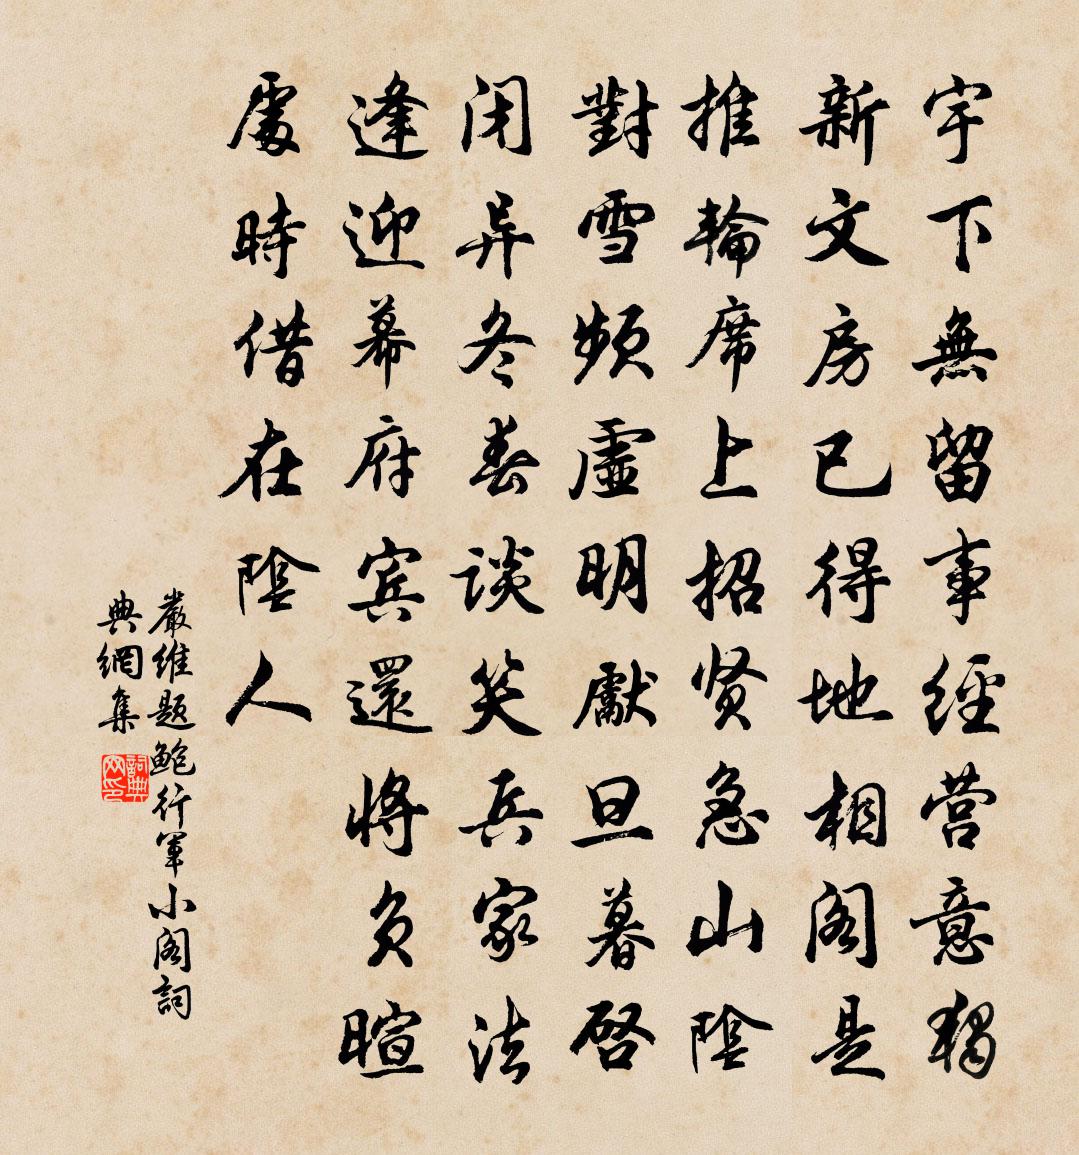 宇下無留事經营意獨
新文房已得地相阁是
推輪席上招贤急山陰
對雪频虛明獻旦暮啓
闭异冬春談笑兵家法
逢迎幕府宾還將负暄
處時借在陰人
嚴維题鮑行軍小阁詞
典網集
詞典网印